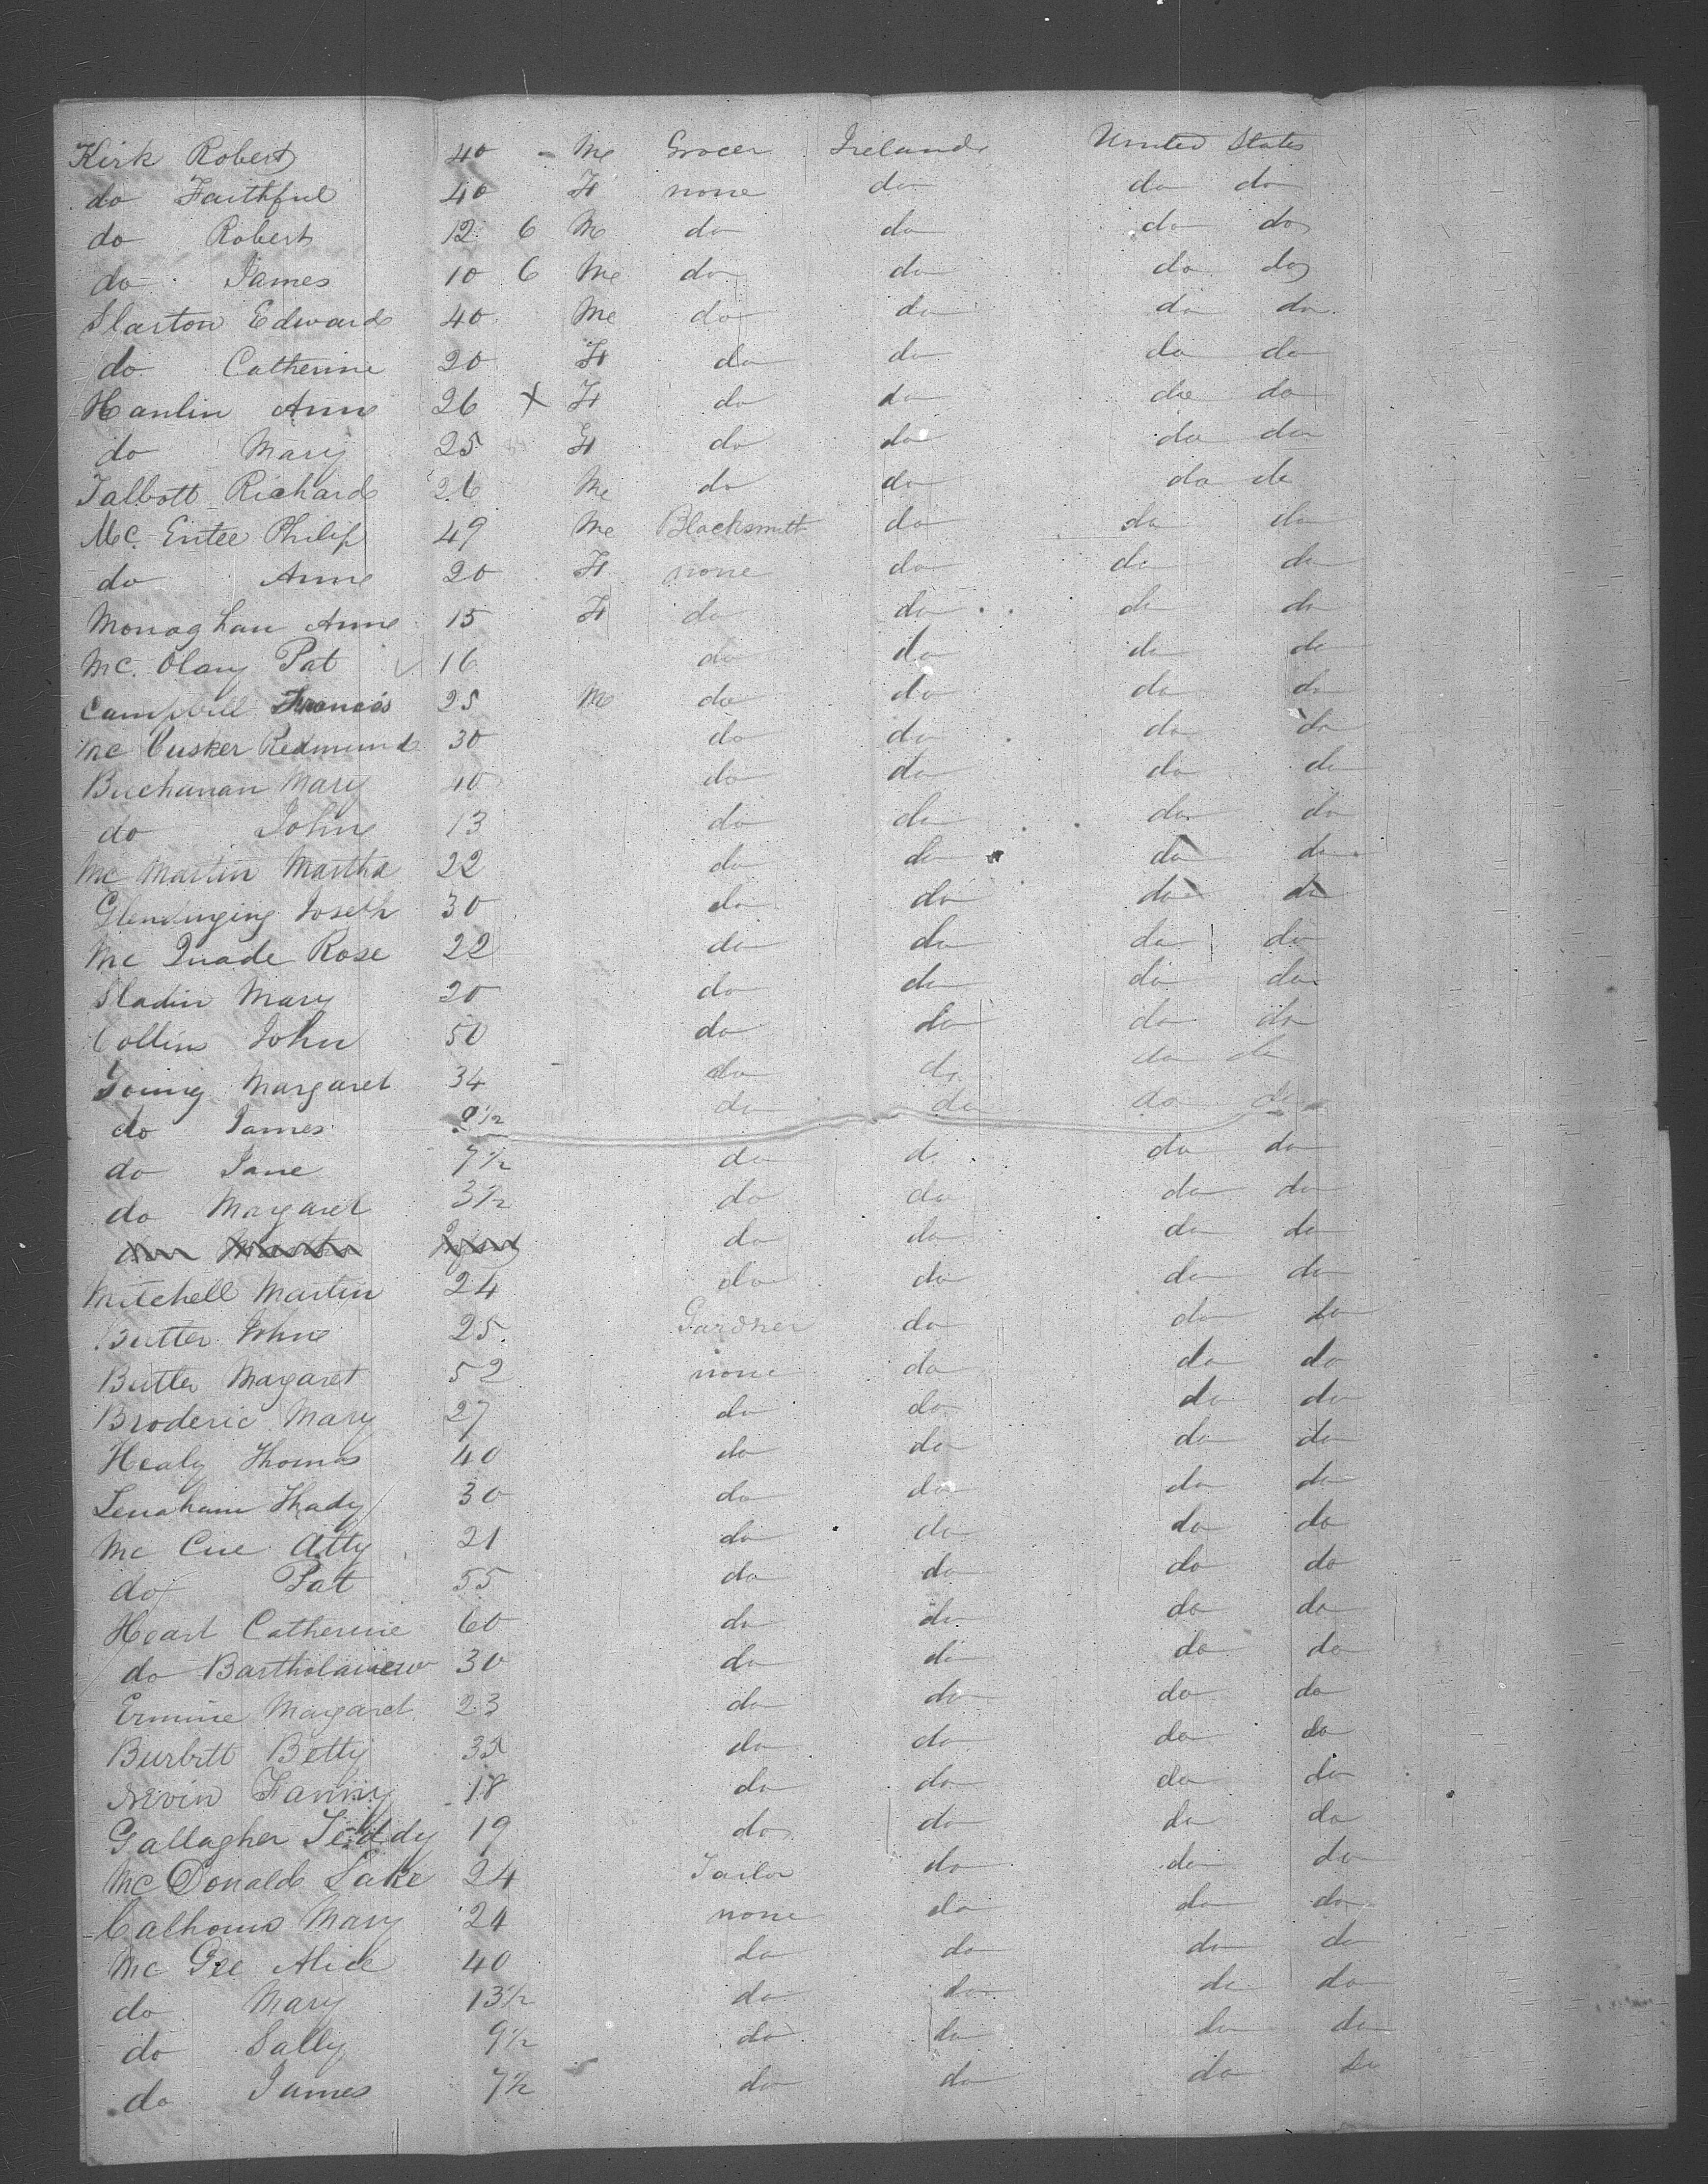 Kirk Robert 40 - M Grocer Ireland United States
do Faithful 40 F none do do do
do Robert 12 6 M do do do do
do James 10 6 M do do do do
Slarton Edward 40 M do do do do
do Catherine 20 F do do do do
Hanlin Anne 26 X F do do do do
do Mary 25 F do do do do
Talbott Richard 26 M do do do do
Mc. Entee Philip 49 M Blacksmith do do do
do Anne 20 F none do do do
Monaghan Anne 15 F do do do do
Mc. Olary Pat 16 do do do do
Campbell Francis 25 M do do do do
Mc Cusker Redmund 30 do do do do
Buchanan Mary 40 do do do do
do John 13 do do do do
Mc Martin Martha 22 do do do do
Glendinging Joseth 30 do do do do
Mc Quade Rose 22 do do do do
Sladin Mary 20 do do do do
Collins John 50 do do do do
Young Margaret 34 do do do do
do James 9½ do do do do
do Jane 7½ do do do do
do Margaret 3½ do do do do
do do do do
Mitchell Martin 24 do do do do
Butler John 25 Gardner do do do
Butler Margaret 52 none do do do
Broderic Mary 27 do do do do
Healy Thomas 40 do do do do
Lenaham Thady 30 do do do do
Mc Cue Atty 21 do do do do
do Pat 55 do do do do
Heart Catherine 60 do do do do
do Bartholamew 30 do do do do
Ermine Margaret 23 do do do do
Burbitt Betty 35 do do do do
Nevin Fanny 18 do do do do
Gallagher Teddy 19 do do do do
Mc Donald Lake 24 Tailor do do do
Calhouns Mary 24 none do do do
Mc Gee Alice 40 do do do do
do Mary 13½ do do do do
do Sally 9½ do do do do
do James 7½ do do do do